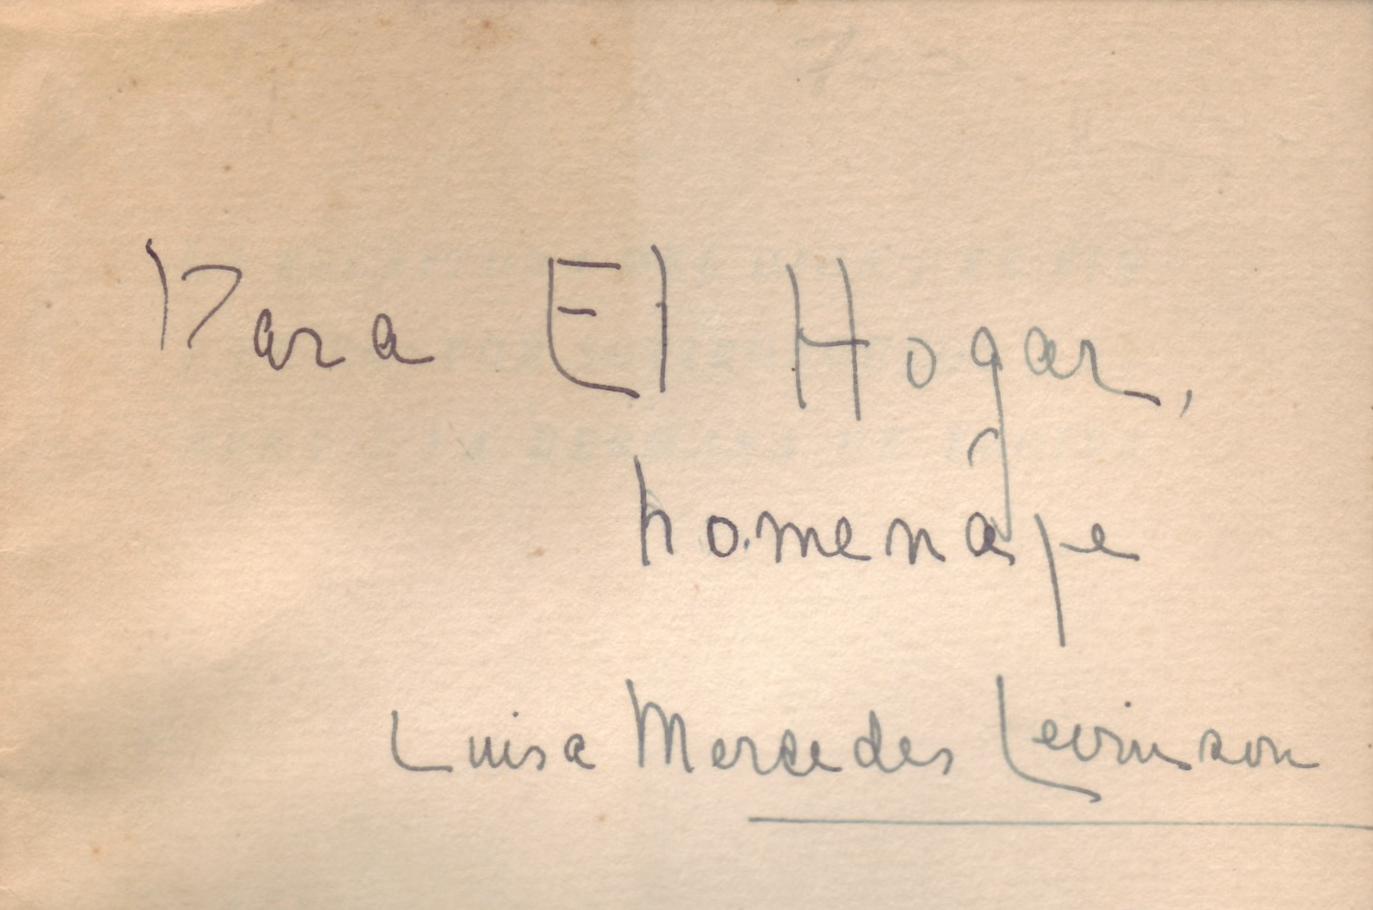 Para El Hogar,
homenaje
Luisa Mercedes Levinson